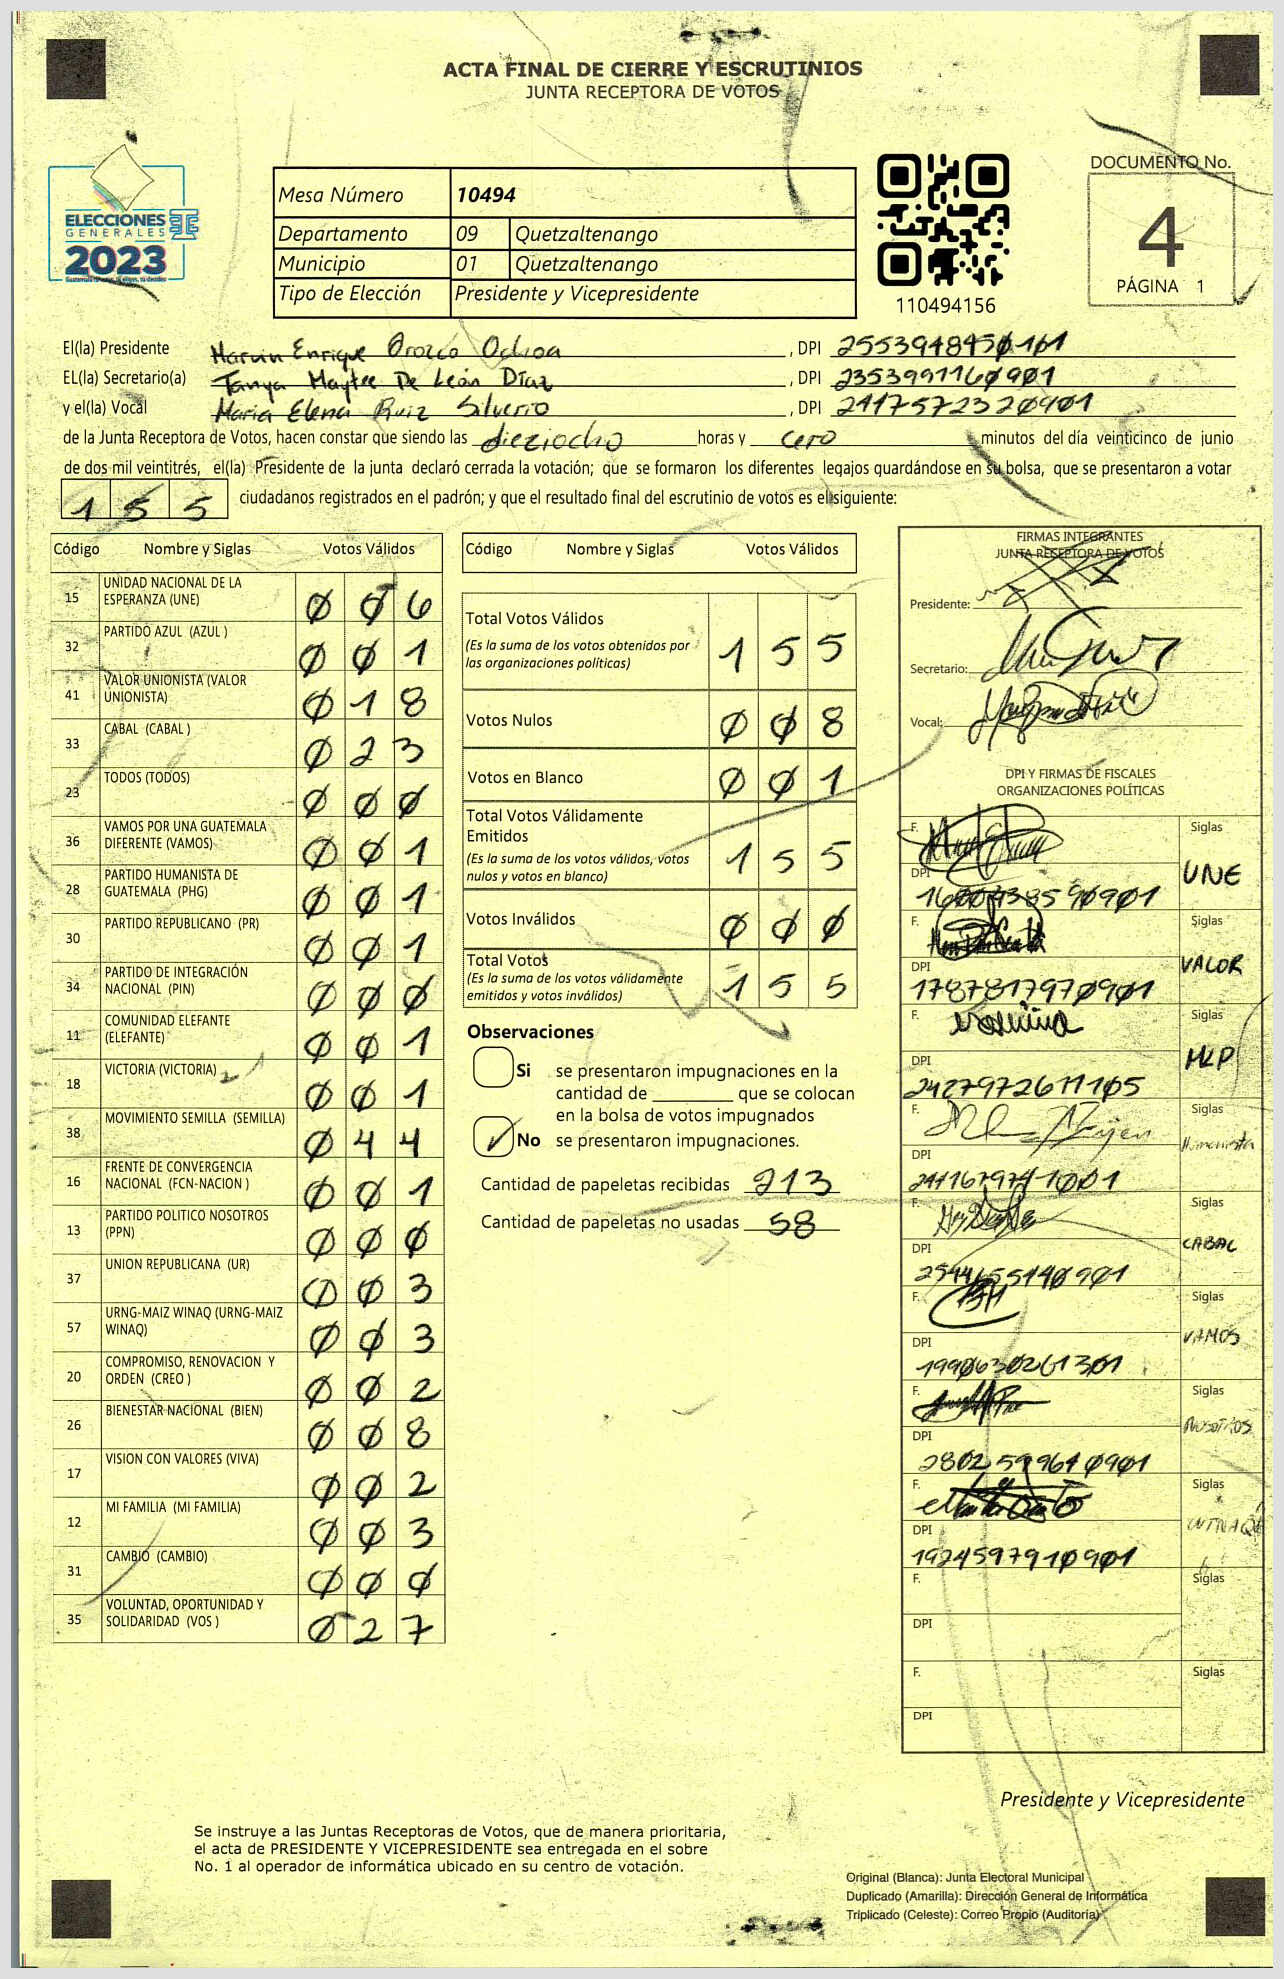 ACTA FINAL DE CIERRE Y ESCRUTINIOS
JUNTA RECEPTORA DE VOTOS
ELECCIONES
GENERALES
2023
Mesa Número 10494
Departamento 09 Quetzaltenango
Municipio 01 Quetzaltenango
Tipo de Elección Presidente y Vicepresidente
110494156
DOCUMENTO No.
4
PÁGINA 1
El(la) Presidente Marvin Enrique Orozco Ochoa , DPI 2553948450101
EL(la) Secretario(a) Tanya Maytee De León Díaz , DPI 2353991160901
y el(la) Vocal Maria Elena Ruiz Silverio , DPI 2417572320901
de la Junta Receptora de Votos, hacen constar que siendo las dieziocho horas y cero minutos del día veinticinco de junio
de dos mil veintitrés, el(la) Presidente de la junta declaró cerrada la votación; que se formaron los diferentes legajos quardándose en su bolsa, que se presentaron a votar
155 ciudadanos registrados en el padrón; y que el resultado final del escrutinio de votos es el siguiente:
Código Nombre y Siglas Votos Válidos
15 UNIDAD NACIONAL DE LA ESPERANZA (UNE) 006
32 PARTIDO AZUL (AZUL ) 001
41 VALOR UNIONISTA (VALOR UNIONISTA) 018
33 CABAL (CABAL ) 023
23 TODOS (TODOS) 000
36 VAMOS POR UNA GUATEMALA DIFERENTE (VAMOS) 001
28 PARTIDO HUMANISTA DE GUATEMALA (PHG) 001
30 PARTIDO REPUBLICANO (PR) 001
34 PARTIDO DE INTEGRACIÓN NACIONAL (PIN) 000
11 COMUNIDAD ELEFANTE (ELEFANTE) 001
18 VICTORIA (VICTORIA) 001
38 MOVIMIENTO SEMILLA (SEMILLA) 044
16 FRENTE DE CONVERGENCIA NACIONAL (FCN-NACION ) 001
13 PARTIDO POLITICO NOSOTROS (PPN) 000
37 UNION REPUBLICANA (UR) 003
57 URNG-MAIZ WINAQ (URNG-MAIZ WINAQ) 003
20 COMPROMISO, RENOVACION Y ORDEN (CREO ) 002
26 BIENESTAR NACIONAL (BIEN) 008
17 VISION CON VALORES (VIVA) 002
12 MI FAMILIA (MI FAMILIA) 003
31 CAMBIO (CAMBIO) 000
35 VOLUNTAD, OPORTUNIDAD Y SOLIDARIDAD (VOS ) 027
Código Nombre y Siglas Votos Válidos
Total Votos Válidos 155
(Es la suma de los votos obtenidos por
las organizaciones políticas)
Votos Nulos 008
Votos en Blanco 001
Total Votos Válidamente
Emitidos 155
(Es la suma de los votos válidos, votos
nulos y votos en blanco)
Votos Inválidos 000
Total Votos 155
(Es la suma de los votos válidamente
emitidos y votos inválidos)
Observaciones
Si se presentaron impugnaciones en la
cantidad de ________ que se colocan
en la bolsa de votos impugnados
✓ No se presentaron impugnaciones.
Cantidad de papeletas recibidas 213
Cantidad de papeletas no usadas 58
FIRMAS INTEGRANTES
JUNTA RESEPTORA DE VOTOS
Presidente:
Secretario:
Vocal:
DPI Y FIRMAS DE FISCALES
ORGANIZACIONES POLÍTICAS
F. Siglas
UNE
DPI
F. Siglas
VALOR
DPI
1787817970901
F. Siglas
MLP
DPI
2427972611105
F. Siglas
Humanista
DPI
F. Siglas
CABAL
DPI
2544655140901
F. Siglas
VAMOS
DPI
1990630261301
F. Siglas
NOSOTROS
DPI
2802599640901
F. Siglas
DPI
1924597910901
F. Siglas
DPI
F. Siglas
DPI
Presidente y Vicepresidente
Se instruye a las Juntas Receptoras de Votos, que de manera prioritaria,
el acta de PRESIDENTE Y VICEPRESIDENTE sea entregada en el sobre
No. 1 al operador de informática ubicado en su centro de votación.
Original (Blanca): Junta Electoral Municipal
Duplicado (Amarilla): Dirección General de Informática
Triplicado (Celeste): Correo Propio (Auditoría)